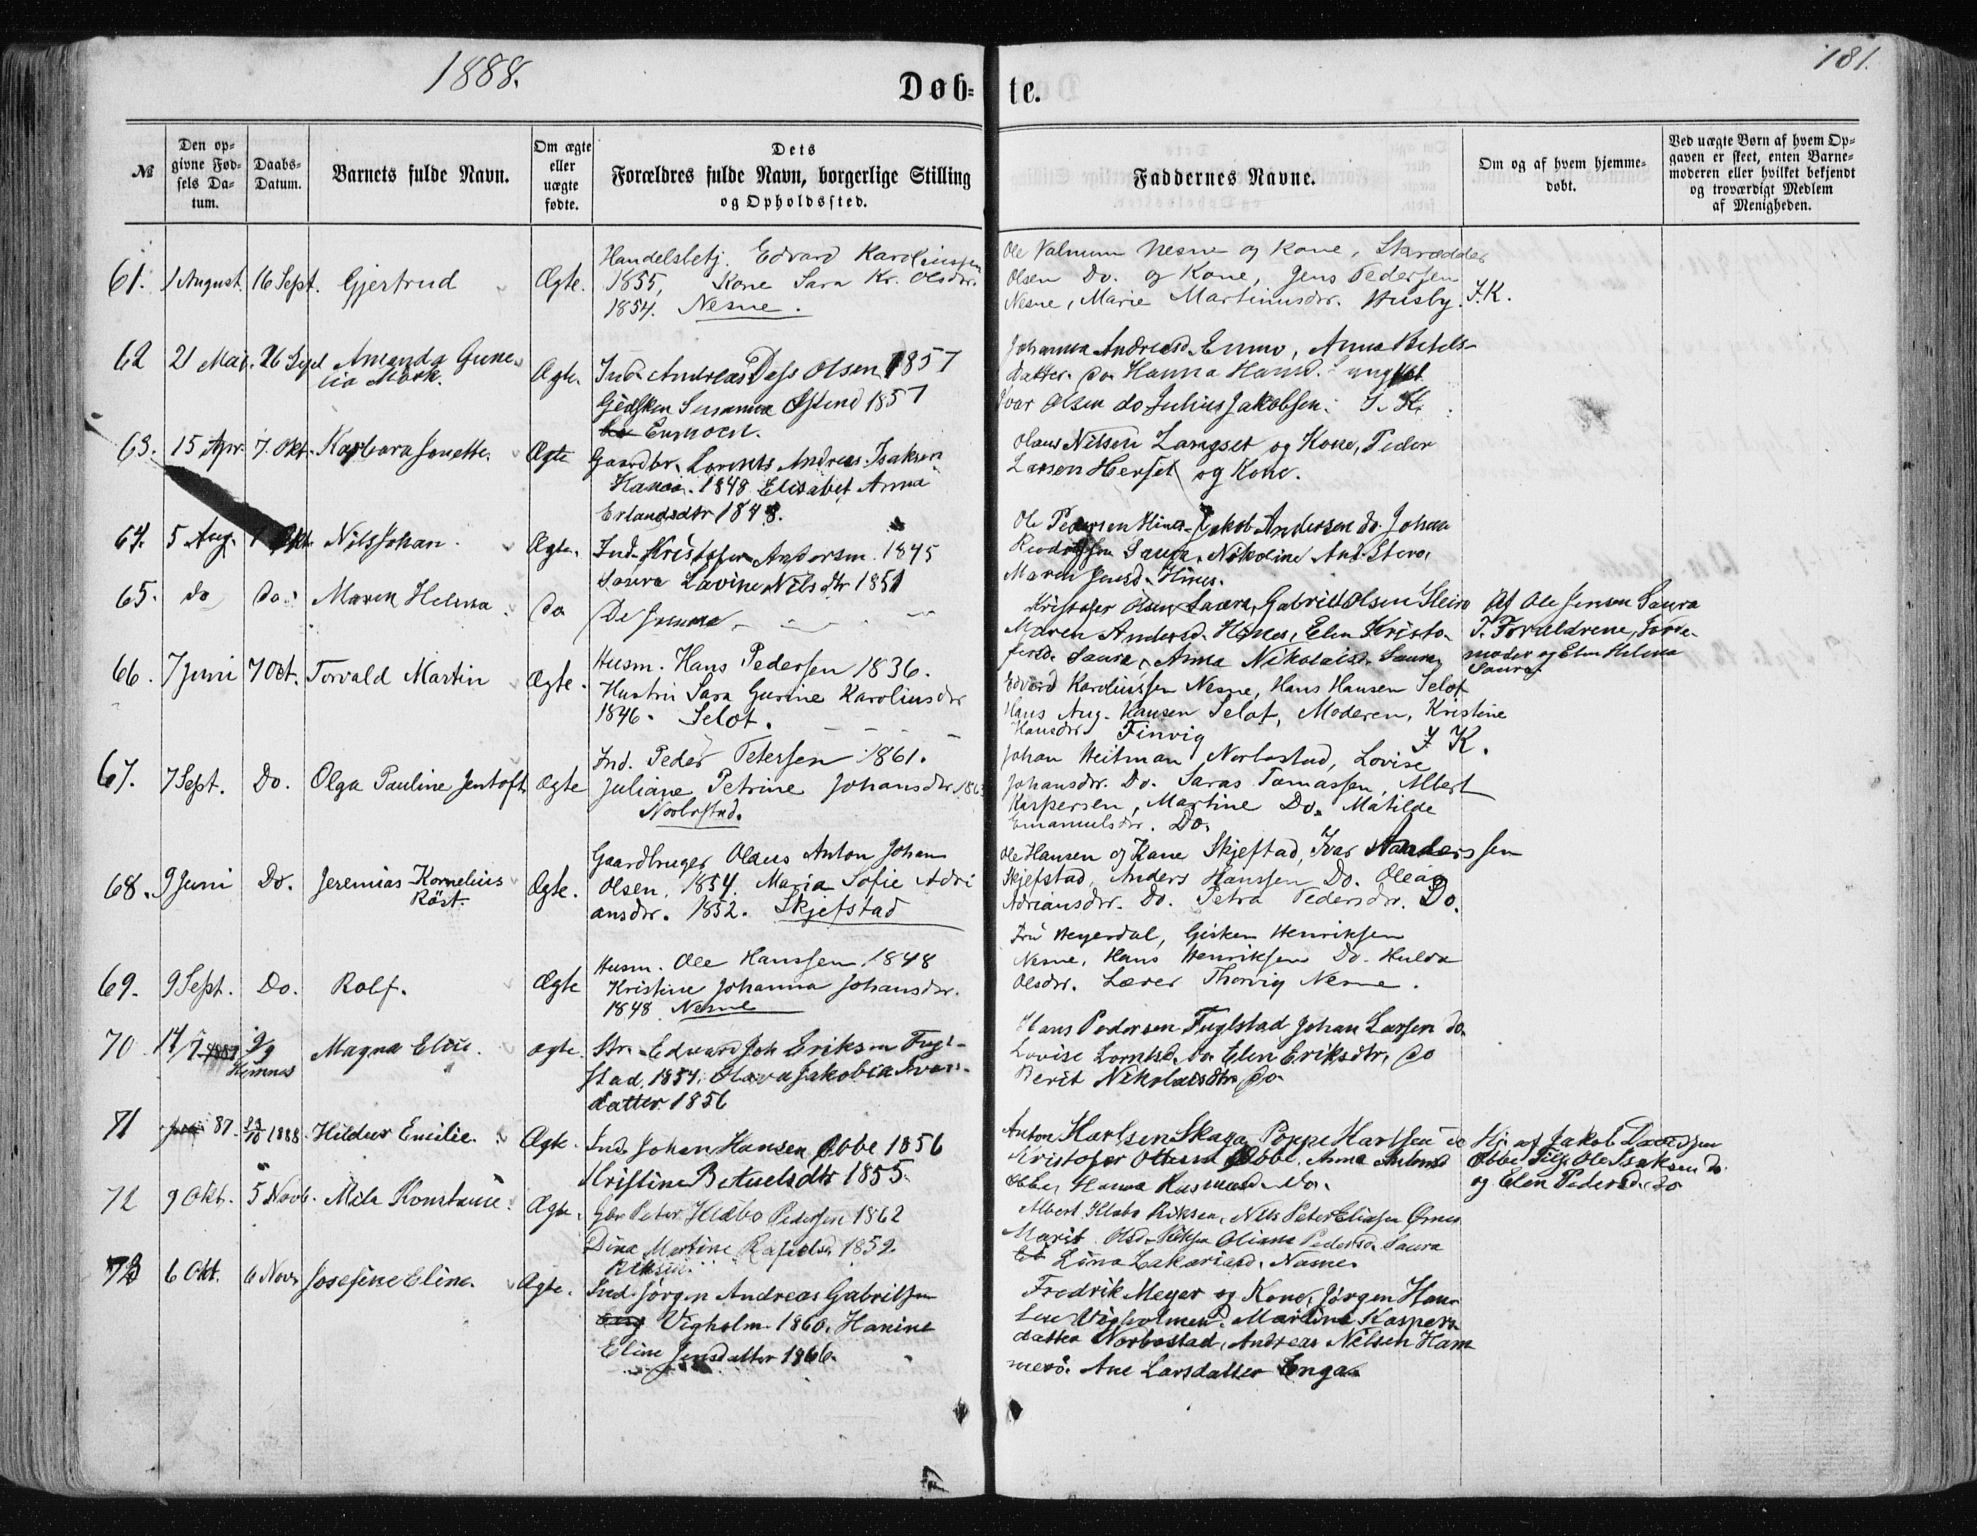 1888.
181.
Døb-
te.
№
Den op-
givne Fød-
sels Da-
tum.
Daabs-
Datum.
Barnets fulde Navn.
Om ægte
eller
uægte
fødte.
Dets
Forældres fulde Navn, borgerlige Stilling
og Opholdssted.
Faddernes Navne.
Om og af hvem hjemme-
døbt.
Ved uægte Børn af hvem Op-
gaven er skeet, enten Barne-
moderen eller hvilket bekjendt
og troværdigt Medlem
af Menigheden.
61. 1 August. 16 Sept. Gjertrud Ægte.
Handelsbetj. Edvard Karolinssen
1855, Kone Sara Kr. Olsdtr.
1854. Nesne.
Ole Valnum Nesne og Kone, Skrædder
Olsen Do. og Kone, Jens Pedersen
Nesne, Marie Martinusdtr. Husby. I.K.
62 21 Mai. 26 Sept Amanda Gune-
lia Mørk. Ægte.
Ind. Andreas Dass Olsen 1857
Gjedsken Susanna 1857
Enmoen.
Johanna Andreasd. Enmo, Anna Betels-
datter do Hanna Hansd.
Ivar Olsen do Julius Jakobsen. I. K.
63. 15 Apr. 7. Okt. Barbara Jonette. Ægte
Gaardbr. Lorents Andreas Isaksen
1848 Elisabet Anna
Erlandsdtr 1848.
Olaus Nilsen Langset og Kone, Peder
Larsen Herset og Kone.
64. 5 Aug. Okt. Nils Johan. Ægte.
Ind. Kristofer Andersen 1845
Saura Lavine Nilsdtr 1851
Ole Pedersen Hines. Jakob Andersen do. Johan
Saura, Nikoline And.
Maren Jensd. Hines.
65. do do. Maren Helena do
De Samme
Kristofer Olsen Saura, Gabriel Olsen Sleiro
Maren Andersd. Hines, Elen Kristo-
fersd. Saura, Anna Nikolaisd. Saura
Af Ole Jensen Saura
T. Forældrene, Jorde-
moder og Elen Helena
Saura
66. 7 Juni 7 Oct. Torvald Martin Ægte.
Husm. Hans Pedersen 1836.
Hustru Sara Gurine Karolinsdtr
1846. Selot.
Edvard Karolinssen Nesne, Hans Hansen Selot
Hans Aug. Hansen Selot, Moderen, Kristine
Hansdtr. Finvig I K.
67. 7 Sept. Do. Olga Pauline Jentoft. Ægte
Ind. Peder Petersen 1861.
Juliane Petrine Johansdtr.
Norbostad.
Johan Heitman Norbostad, Lovise
Johansdtr. Do. Saras Tomassen, Albert
Kaspersen, Martine Do. Matilde
Emanuelsdtr. Do.
68. 9 Juni Do. Jeremias Kornelius
Røst. Ægte.
Gaardbruger Olaus Anton Johan
Olsen. 1854. Maria Sofie Adri
ansdtr. 1852. Skjefstad
Ole Hansen og Kone Skjefstad, Ivar Anderssen
Skjefstad, Anders Hanssen Do. Olea
Adriansdtr. Do. Petra Pedersdtr. Do.
69. 9 Sept. Do. Rolf. Ægte
Husm. Ole Hanssen 1848
Kristine Johanna Johansdtr.
1848 Nesne
Fru Heyerdal, Gisken Henriksen
Nesne, Hans Henriksen Do. Hulda
Olsdtr. Lærer Thorvig Nesne.
70. 14/7 9/9
Hemnes Magna Elise. ægte.
Str. Edvard Joh Eriksen Fugl-
stad. 1854. Olava Jakobia Ivars-
datter 1856
Hans Pedersen Fuglstad Johan Larsen do.
Lovise Lorntsd. do. Elen Eriksdtr. do
Berit Nikolaisdtr. do.
71 87. 1888. Hildur Emilie. Ægte.
Ind Johan Hansen Ebbe 1856
Kristine Betuelsdtr 1855.
Anton Karlsen Skaga Karlsen do
Kristofer Ebbe. Anna
Ebbe, Hanna Rasmusd. do.
Hj. af Jakob Davidsen
Ebbe Tilst. Ole Isaksen do.
og Elen Pedersd. do
72 9 Okt. 5 Novb. Mila Konstanse. Ægte.
Gbr Peter Hebo Pedersen 1862
Dina Martine 1859.
Riksen
Albert Klabo Riksen, Nils Peter Eliasen Ørnes
Marit Olsd. Riksen Oliana Pedersd. Saura
Lina Zakariasd. Nesne.
73 6 Okt. 6 Novr Josefine Eline. Ægte.
Ind. Jørgen Andreas Gabrielsen
Vigholm. 1860. Hanine
Eline Jensdatter 1866.
Fredrik Meyer og Kone, Jørgen Han-
sen Vigholmen. Martine Kaspers
datter Norbostad, Andreas Nilsen Ham
nerø. Ane Larsdatter Enga